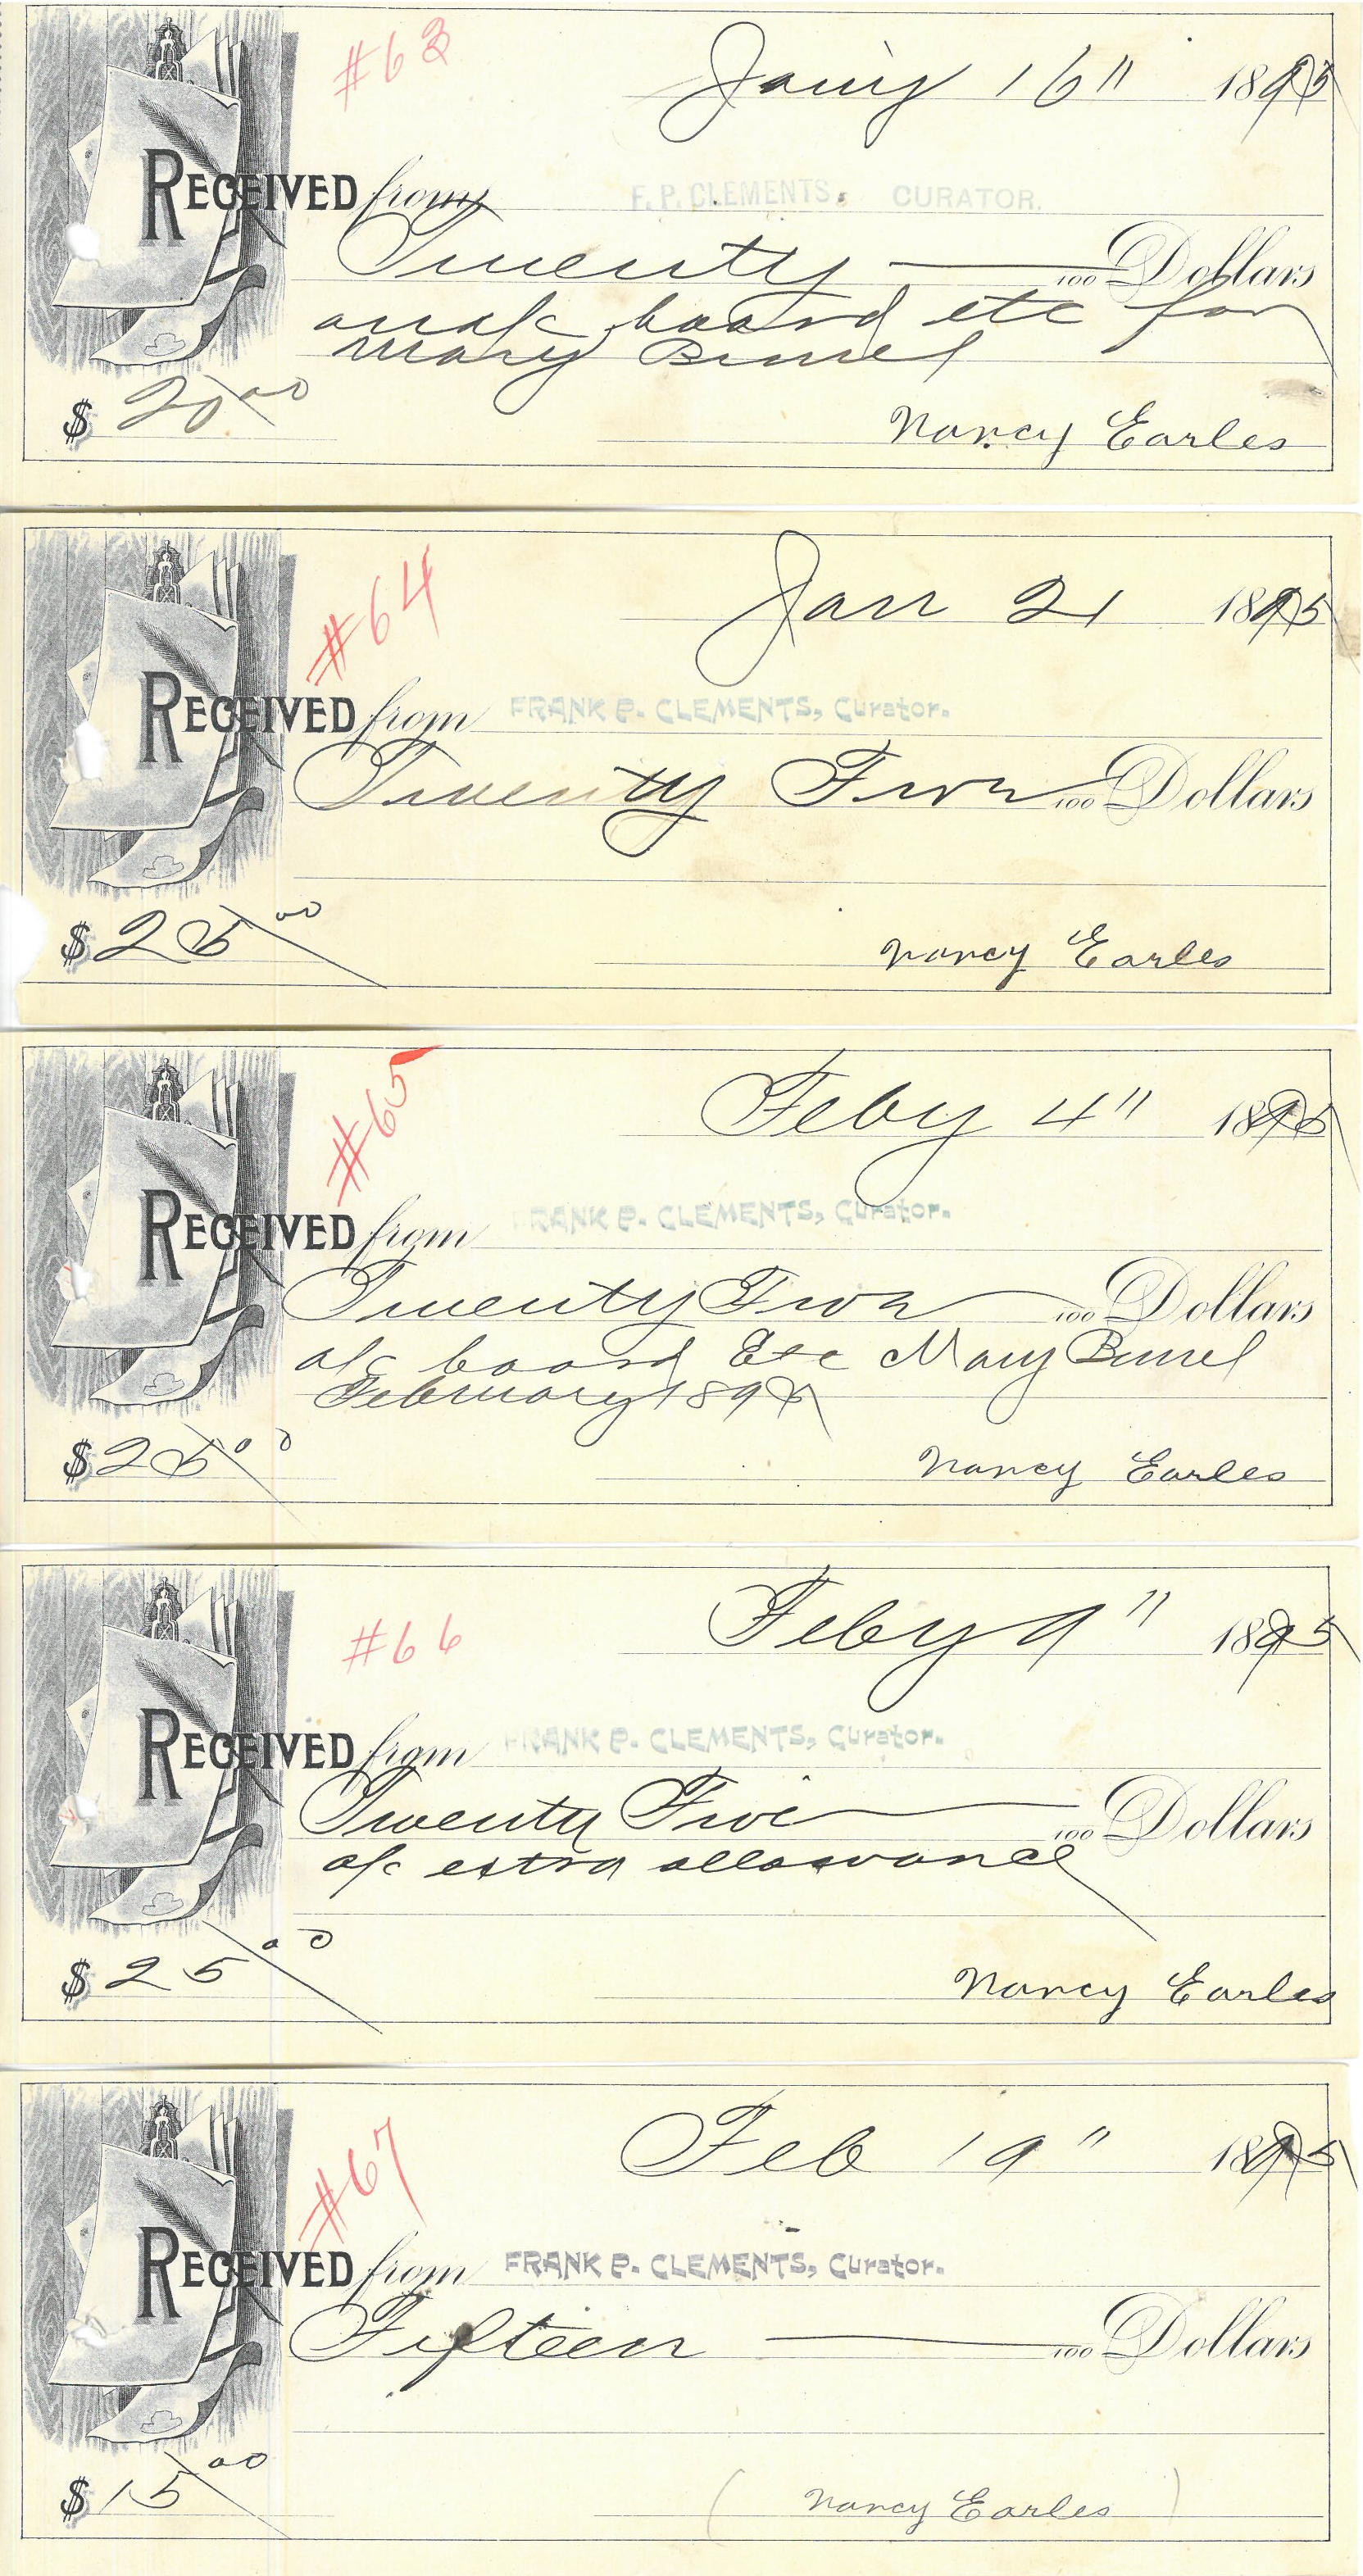 #63
Jany 16" 1895
RECEIVED from F. P. CLEMENTS, CURATOR.
Twenty 100 Dollars
on a/c board etc for
Mary Burrel
$ 20 00
Nancy Earles
#64
Jan 21 1895
RECEIVED from FRANK P. CLEMENTS, Curator.
Twenty Five 100 Dollars
$ 25 00
Nancy Earles
#65
Feby 4" 1895
RECEIVED from FRANK P. CLEMENTS, Curator.
Twenty Five 100 Dollars
a/c board Etc Mary Burrel
February 1895
$ 25 00
Nancy Earles
#66
Feby 9" 1895
RECEIVED from FRANK P. CLEMENTS, Curator.
Twenty Five 100 Dollars
a/c extra allowance
$ 25 00
Nancy Earles
#67
Feb 19" 1895
RECEIVED from FRANK P. CLEMENTS, Curator.
Fifteen 100 Dollars
$ 15 00
(Nancy Earles)